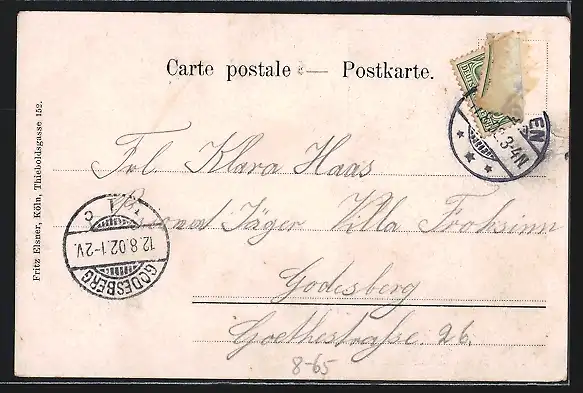 Carte postale — Postkarte.
EN
3-4N
Frl. Klara Haas
Jäger Villa Frohsinn
Godesberg
Goethestraße 26.
8-65
12.8.02.1-2V.
GODESBERG
Fritz Elsner, Köln, Thieboldsgasse 152.